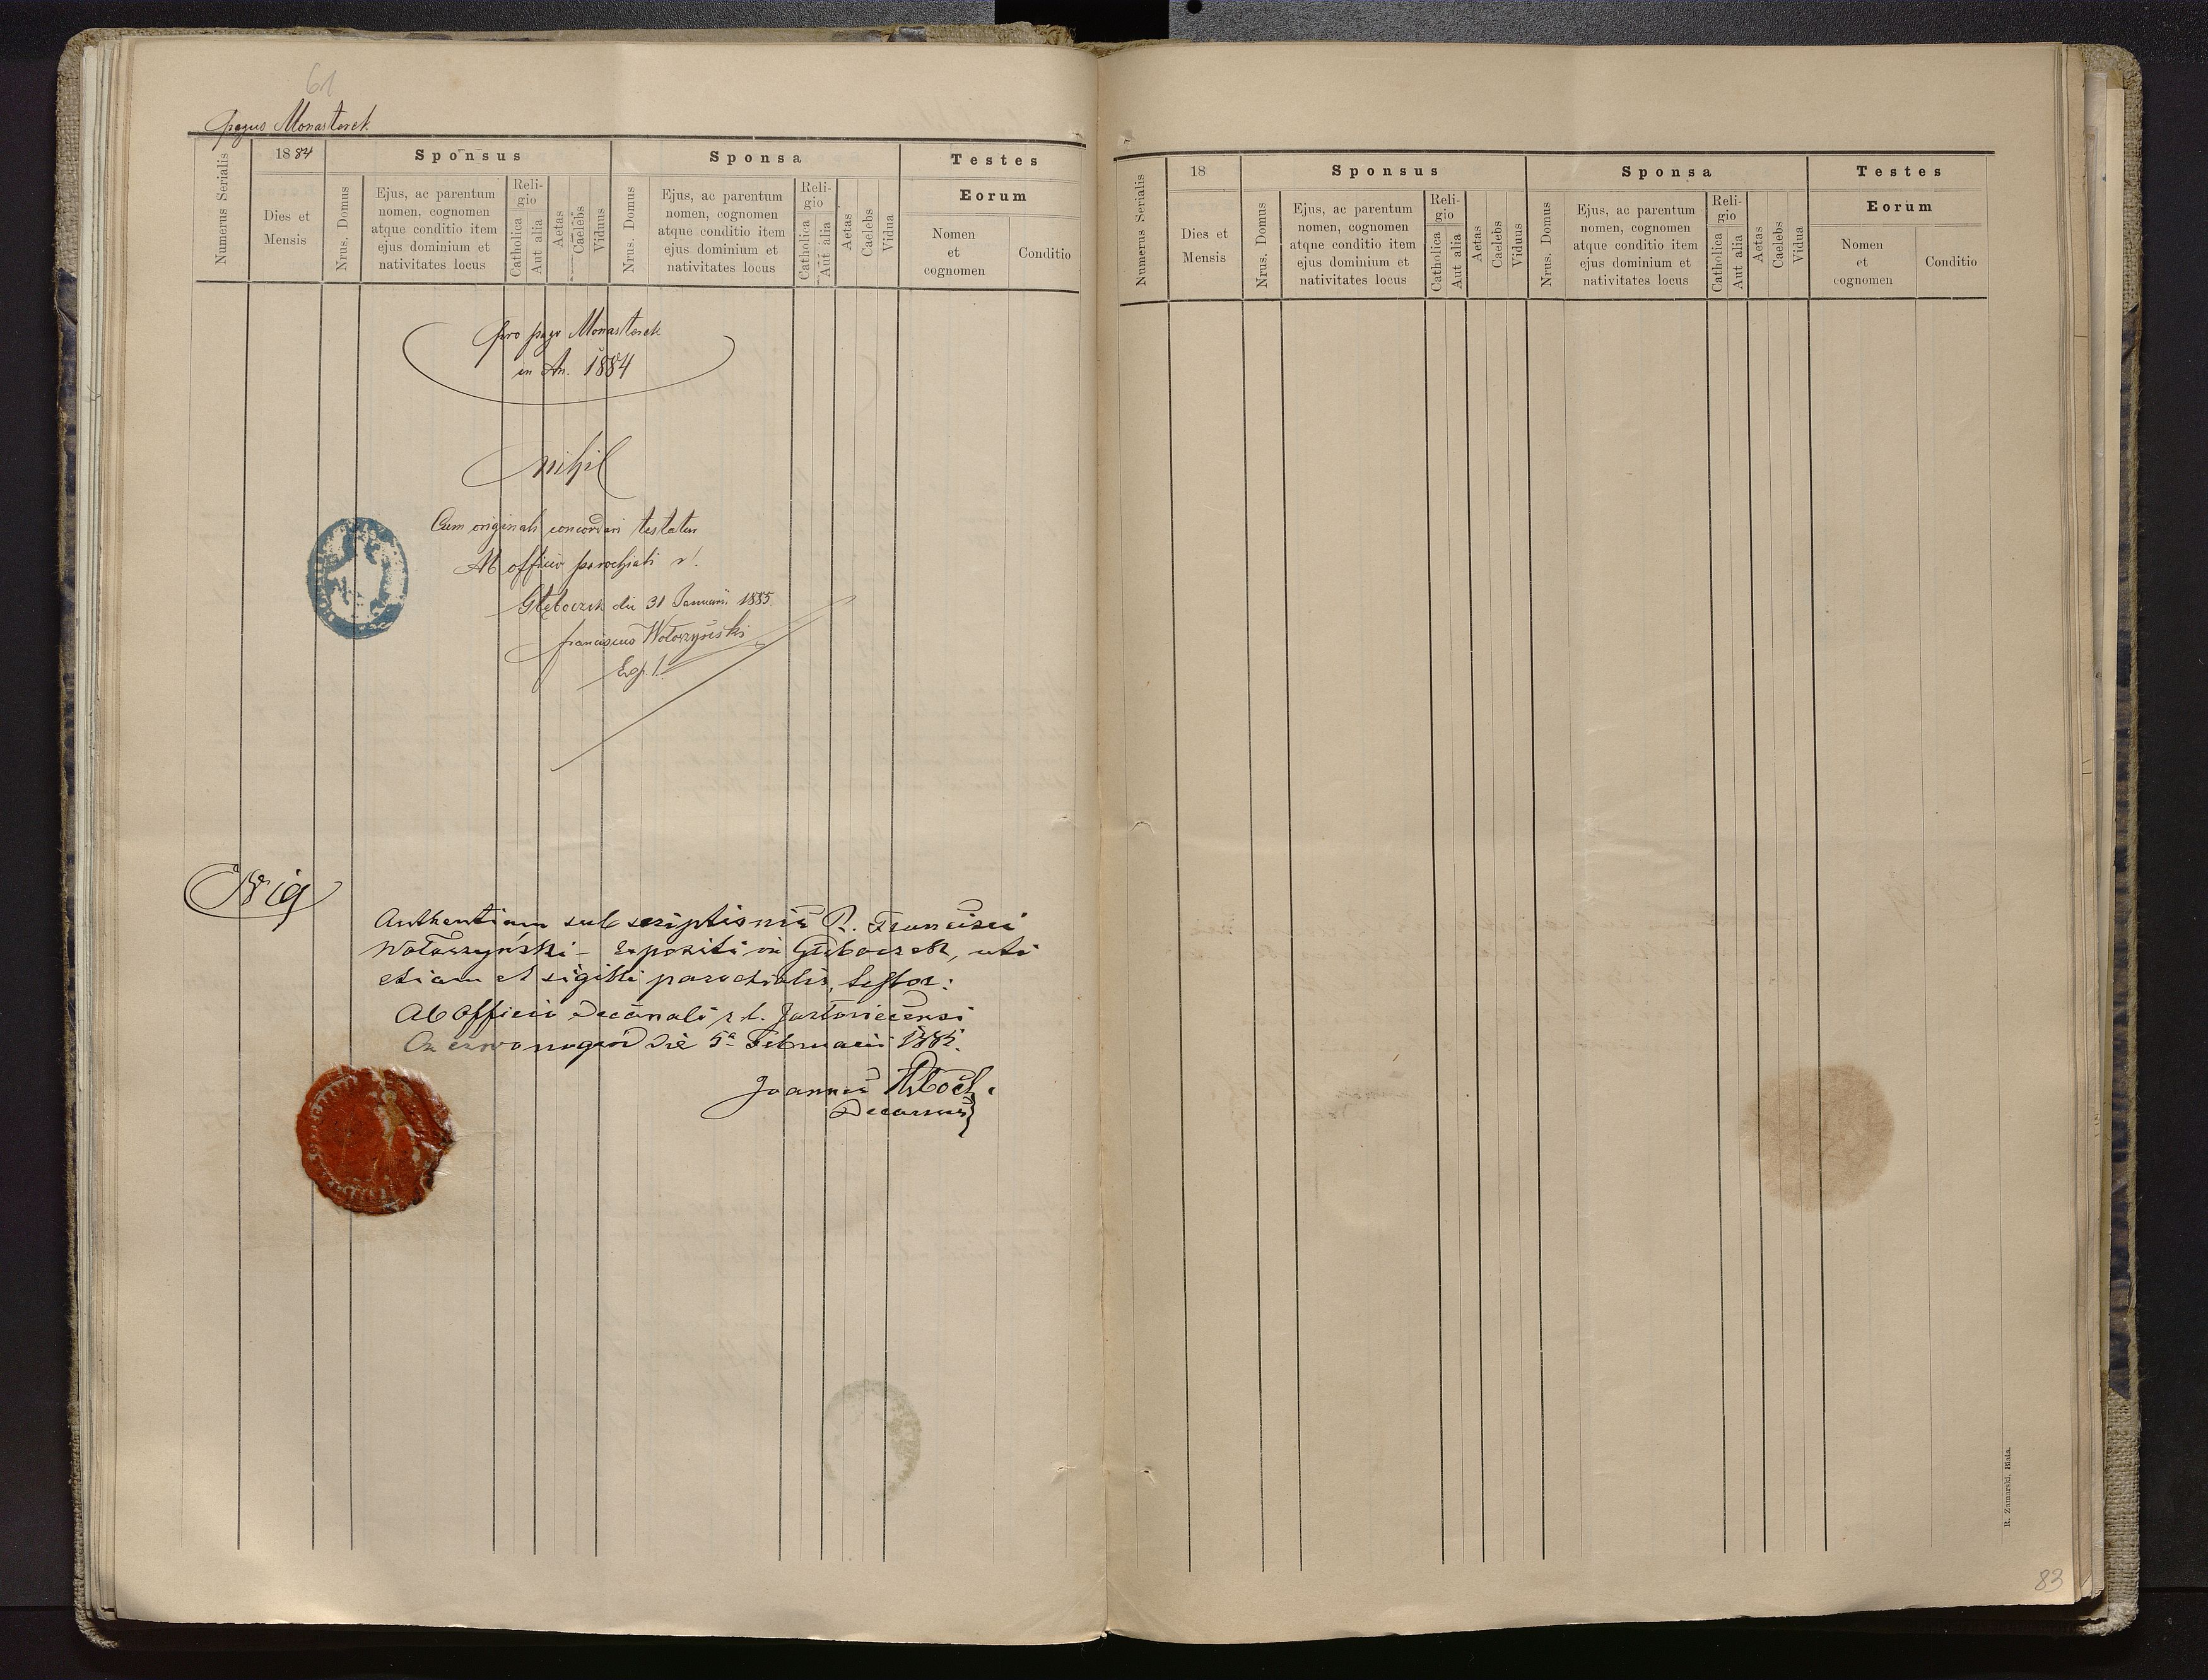 61
pagus Monasterek
Numerus Serialis
1884
Dies et
Mensis
Sponsus
Nrus. Domus
Ejus, ac parentum
nomen, cognomen
atque conditio item
ejus dominium et
nativitates locus
Reli-
gio
Catholica
Aut alia
Aetas
Caelebs
Viduus
Sponsa
Nrus. Domus
Ejus, ac parentum
nomen, cognomen
atque conditio item
ejus dominium et
nativitates locus
Reli-
gio
Catholica
Aut alia
Aetas
Caelebs
Vidua
Testes
Eorum
Nomen
et
cognomen
Conditio
pro pago Monasterek
in An. 1884
nihil
Cum originali concordari testatur
Ab officio parochiali r!
Głęboczek die 31 Januarii 1885
Franciscus Wołoszyński
Exp. l.
Authentiam subscriptionis R. Francisci
Wołoszyński – Expositi in Głęboczek, uti
etiam et sigilli parochialis, testor:
Ab Officio Decanali r. l. Jazłoviecensi
die 5a Februarii 1885.
Joannes
Decanus
Numerus Serialis
18
Dies et
Mensis
Sponsus
Nrus. Domus
Ejus, ac parentum
nomen, cognomen
atque conditio item
ejus dominium et
nativitates locus
Reli-
gio
Catholica
Aut alia
Aetas
Caelebs
Viduus
Sponsa
Nrus. Domus
Ejus, ac parentum
nomen, cognomen
atque conditio item
ejus dominium et
nativitates locus
Reli-
gio
Catholica
Aut alia
Aetas
Caelebs
Vidua
Testes
Eorum
Nomen
et
cognomen
Conditio
R. Zamarski, Biała.
83